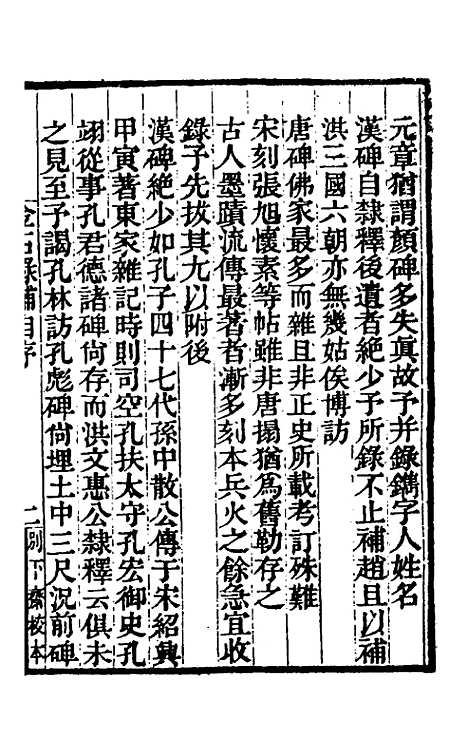 元章猶謂顏碑多失眞故予并錄鐫字人姓名
漢碑自隸釋後遺者絶少予所錄不止補趙且以補
洪三國六朝亦無幾姑俟博訪
唐碑佛家最多而雜且非正史所載考訂殊難
宋刻張旭懷素等帖雖非唐搨猶爲舊勒存之
古人墨蹟流傳最著者漸多刻本兵火之餘急宜收
錄予先拔其尤以附後
漢碑絶少如孔子四十七代孫中散公傳于宋紹興
甲寅著東家雜記時則司空孔扶太守孔宏御史孔
翊從事孔君德諸碑尙存而洪文惠公隸釋云俱未
之見至予謁孔林訪孔彪碑尙埋土中三尺況前碑
金石錄補目序
二
別下齋校本